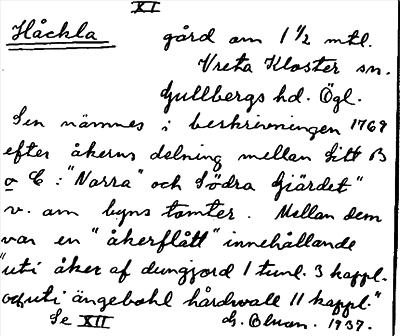 XI
Håckla gård om 1 1/2 mtl.
Vreta Kloster sn.
Gullbergs hd. Ögl.
Sen nämnes i beskrivningen 1769
efter åkerns delning mellan Litt B
o C: "Norra" och Södra Gjärdet"
v. om byns tomter. Mellan dem
var en "åkerflått" innehållande
"uti åker af dungjord 1 tunl. 3 kappl.
och uti ängebohl hårdwall 11 kappl."
Se XII
1937.